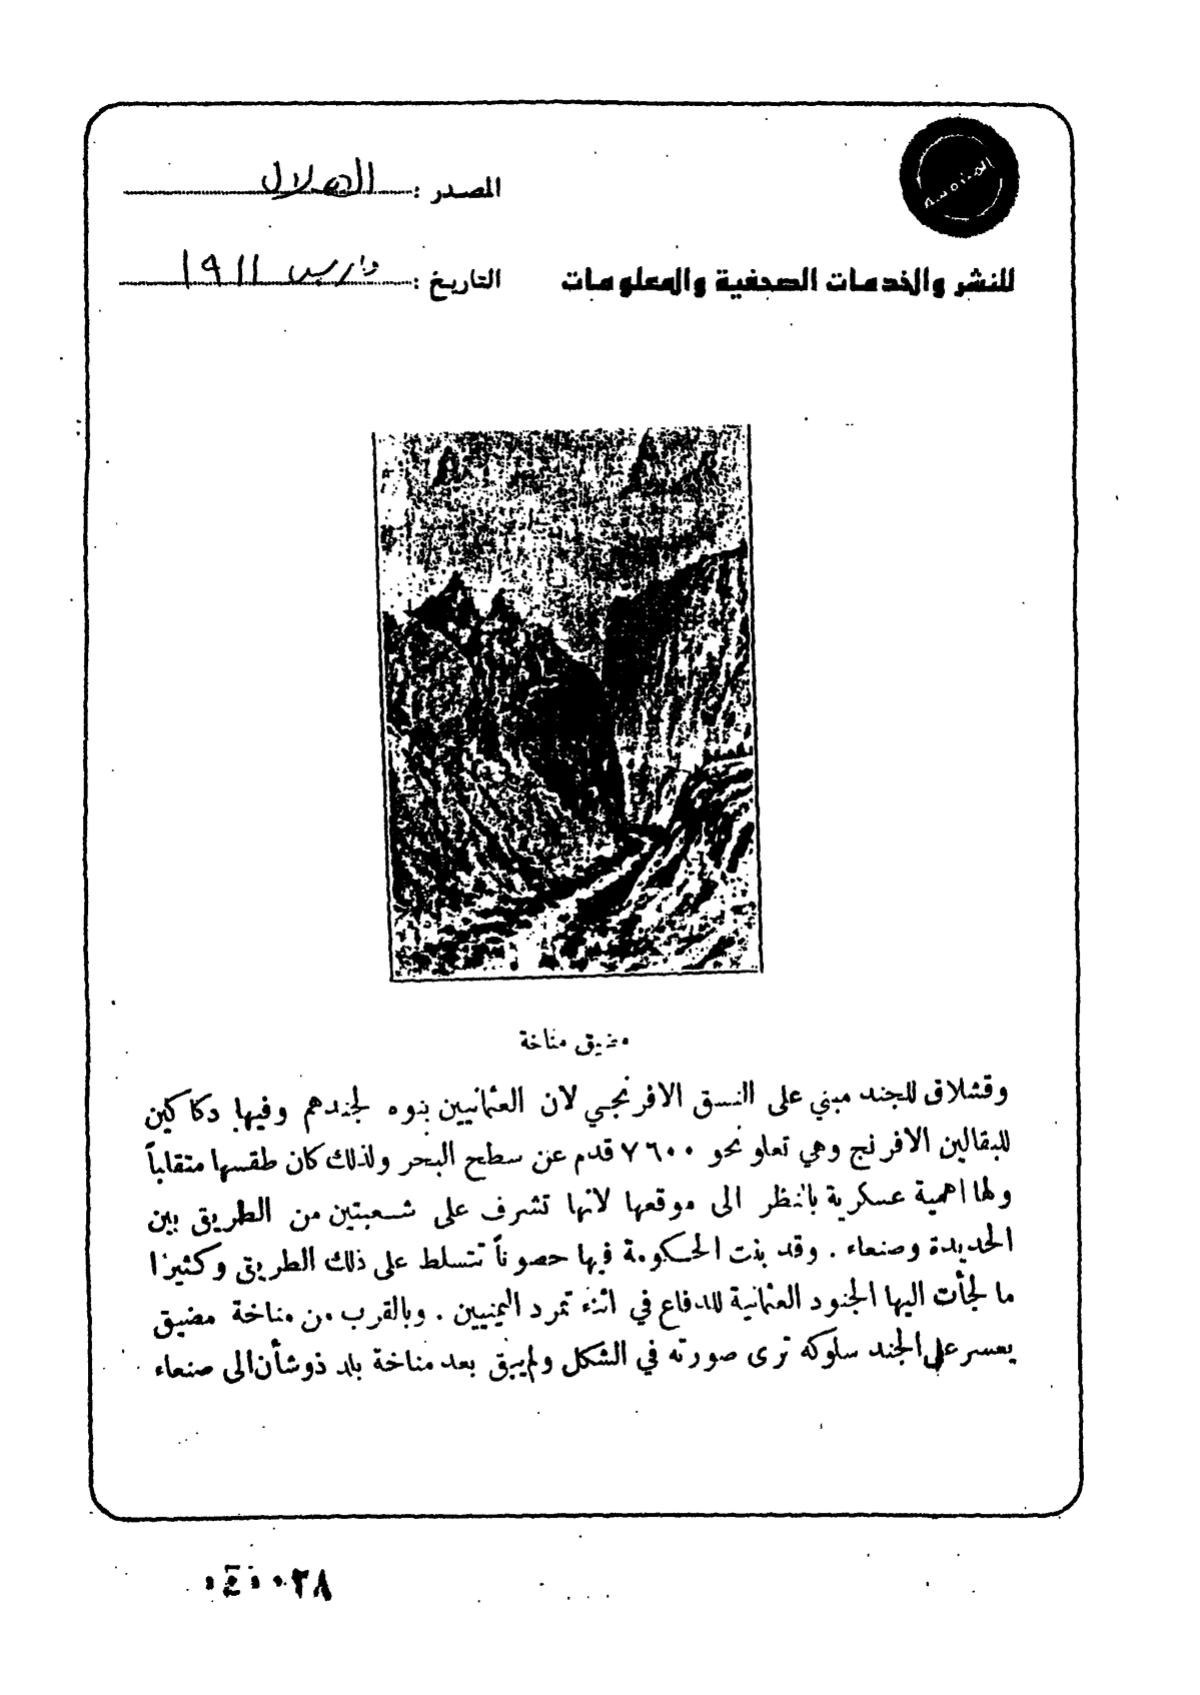 المصدر : الهلال
للنشر والخدمات الصحفية والمعلومات
التاريخ : مارس ١٩١١
مضيق مناخة
وقشلاق للجند مبني على النسق الافرنجي لان العثمانيين بنوه لجندهم وفيها دكاكين
للبقالين الافرنج وهي تعلو نحو ٧٦٠٠ قدم عن سطح البحر ولذلك كان طقسها متقلباً
ولها اهمية عسكرية بالنظر الى موقعها لانها تشرف على شعبتين من الطريق بين
الحديدة وصنعاء . وقد بنت الحكومة فيها حصوناً تتسلط على ذلك الطريق وكثيرا
ما لجأت اليها الجنود العثمانية للدفاع في اثناء تمرد اليمنيين . وبالقرب من مناخة مضيق
يعسر على الجند سلوكه ترى صورته في الشكل ولم يبق بعد مناخة بلد ذو شأن الى صنعاء